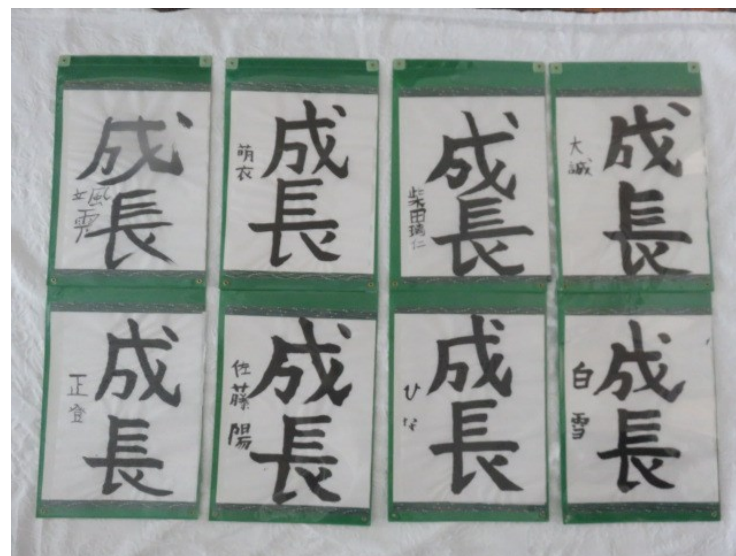 成長
颯雲
成長
萌衣
成長
柴田琉仁
成長
大誠
成長
正宜
成長
佐藤陽
成長
ひな
成長
白雪